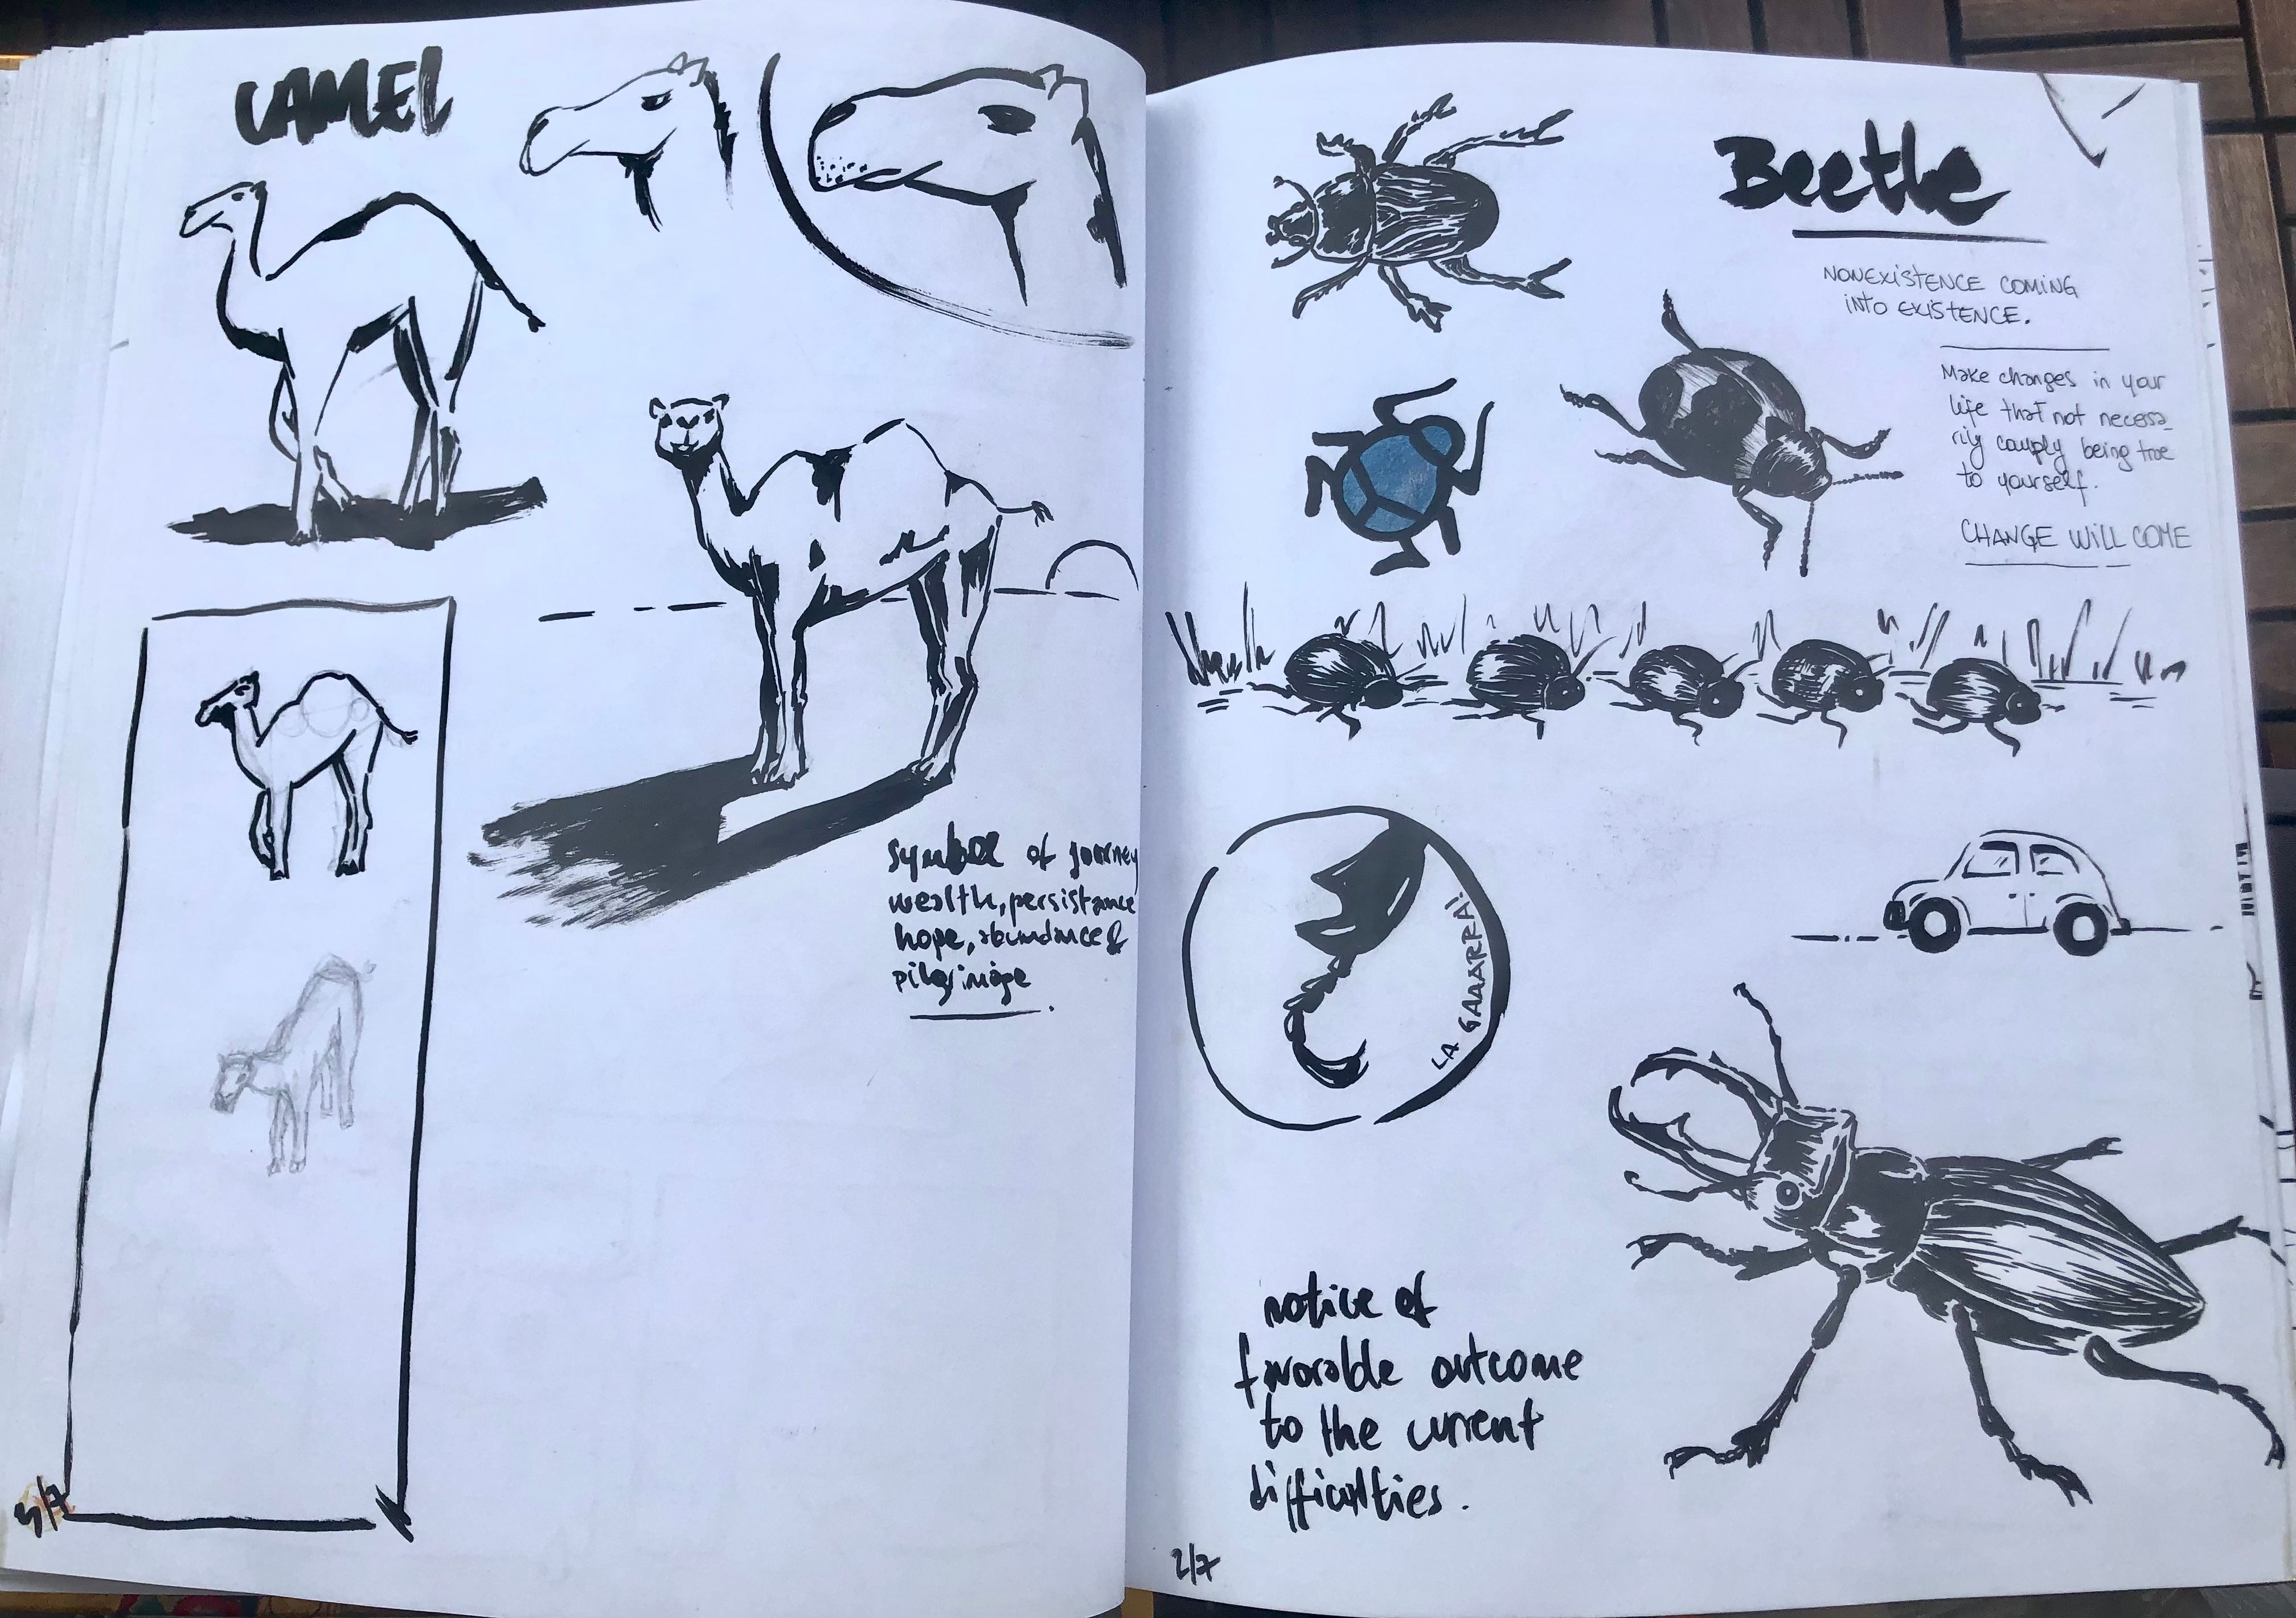 CAMEL
symbol of journey
wealth, persistance
hope, abundance &
pilgrimage
5/7
Beetle
NONEXISTENCE COMING
INTO EXISTENCE.
Make changes in your
life that not necessa_
rily comply being true
to yourself.
CHANGE WILL COME
LA GAAARRA!
notice of
favorable outcome
to the current
difficulties.
2/7